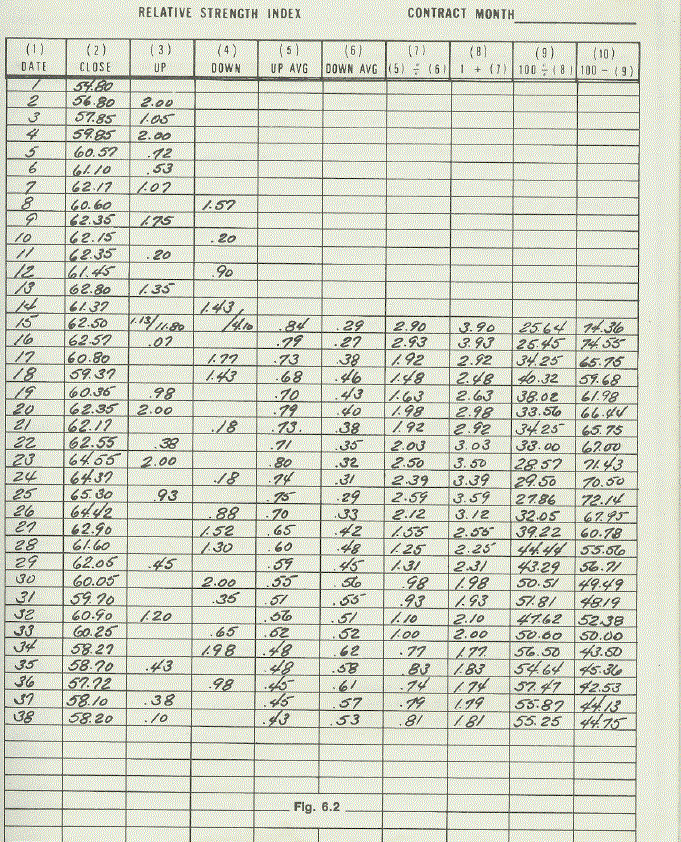 RELATIVE STRENGTH INDEX CONTRACT MONTH
(1) (2) (3) (4) (5) (6) (7) (8) (9) (10)
DATE CLOSE UP DOWN UP AVG DOWN AVG (5) ÷ (6) 1 + (7) 100 ÷ (8) 100 - (9)
1 54.80
2 56.80 2.00
3 57.85 1.05
4 59.85 2.00
5 60.57 .72
6 61.10 .53
7 62.17 1.07
8 60.60 1.57
9 62.35 1.75
10 62.15 .20
11 62.35 .20
12 61.45 .90
13 62.80 1.35
14 61.37 1.43
15 62.50 1.13/11.80 /4.10 .84 .29 2.90 3.90 25.64 74.36
16 62.57 .07 .79 .27 2.93 3.93 25.45 74.55
17 60.80 1.77 .73 .38 1.92 2.92 34.25 65.75
18 59.37 1.43 .68 .46 1.48 2.48 40.32 59.68
19 60.35 .98 .70 .43 1.63 2.63 38.02 61.98
20 62.35 2.00 .79 .40 1.98 2.98 33.56 66.44
21 62.17 .18 .73. .38 1.92 2.92 34.25 65.75
22 62.55 .38 .71 .35 2.03 3.03 33.00 67.00
23 64.55 2.00 .80 .32 2.50 3.50 28.57 71.43
24 64.37 .18 .74 .31 2.39 3.39 29.50 70.50
25 65.30 .93 .75 .29 2.59 3.59 27.86 72.14
26 64.42 .88 .70 .33 2.12 3.12 32.05 67.95
27 62.90 1.52 .65 .42 1.55 2.55 39.22 60.78
28 61.60 1.30 .60 .48 1.25 2.25 44.44 55.56
29 62.05 .45 .59 .45 1.31 2.31 43.29 56.71
30 60.05 2.00 .55 .56 .98 1.98 50.51 49.49
31 59.70 .35 .51 .55 .93 1.93 51.81 48.19
32 60.90 1.20 .56 .51 1.10 2.10 47.62 52.38
33 60.25 .65 .52 .52 1.00 2.00 50.00 50.00
34 58.27 1.98 .48 .62 .77 1.77 56.50 43.50
35 58.70 .43 .48 .58 .83 1.83 54.64 45.36
36 57.72 .98 .45 .61 .74 1.74 57.47 42.53
37 58.10 .38 .45 .57 .79 1.79 55.87 44.13
38 58.20 .10 .43 .53 .81 1.81 55.25 44.75
Fig. 6.2